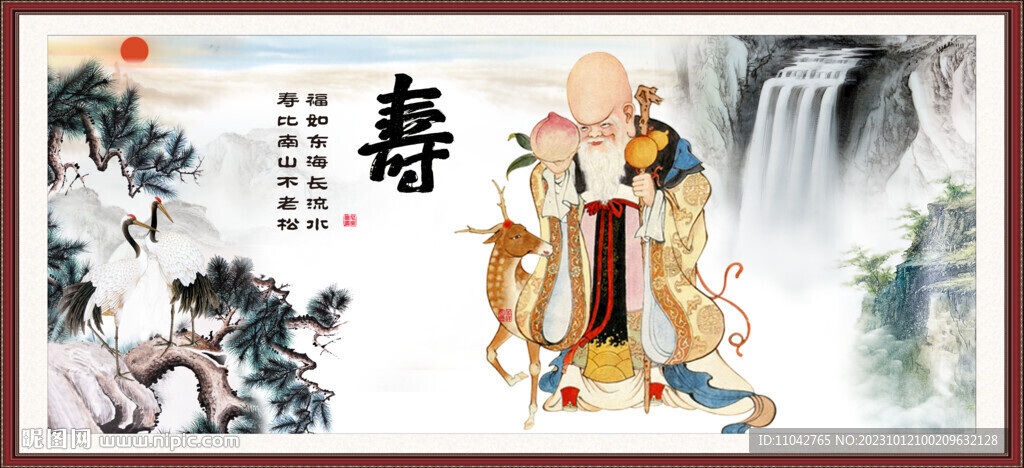 福如东海长流水
寿比南山不老松
寿
昵图网 www.nipic.com
ID:11042765 NO:20231012100209632128